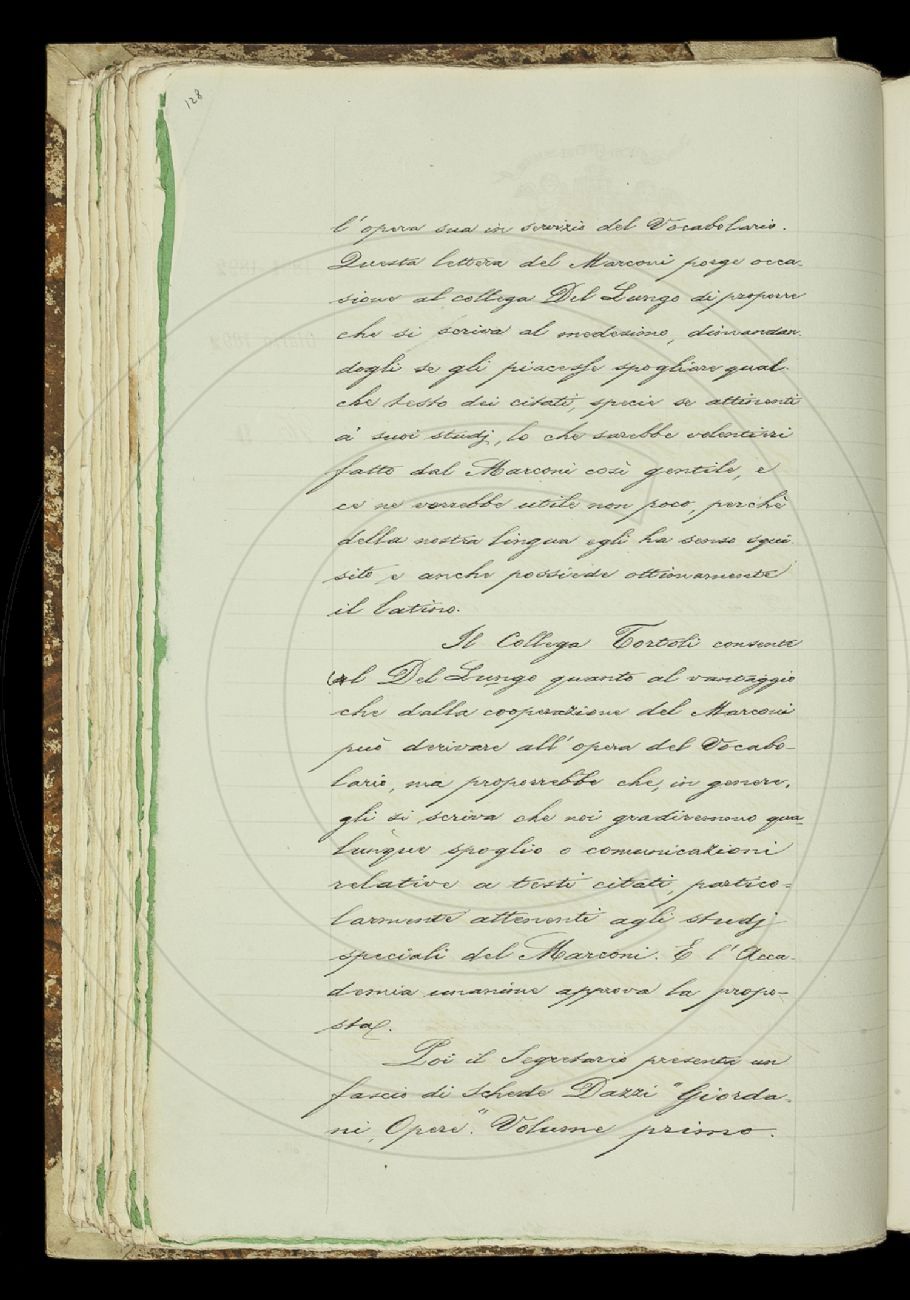 128
l'opera sua in servizio del Vocabolario.
Questa lettera del Marconi porge occa-
sione al collega Del Lungo di proporre
che si scriva al medesimo, dimandan-
dogli se gli piacesse spogliare qual-
che testo dei citati, specie se attinenti
a' suoi studj, lo che sarebbe volentieri
fatto dal Marconi così gentile, e
ce ne verrebbe utile non poco, perchè
della nostra lingua egli ha senso squi-
sito, e anche possiede ottimamente
il latino.
Il Collega Tortoli consente
al Del Lungo quanto al vantaggio
che dalla cooperazione del Marconi
può derivare all'opera del Vocabo-
lario, ma proporrebbe che, in genere,
gli si scriva che noi gradiremmo qua-
lunque spoglio o comunicazioni
relative a testi citati, partico-
larmente attenenti agli studj
speciali del Marconi. E l'Acca-
demia unanime approva la propo-
sta.
Poi il Segretario presenta un
fascio di schede Dazzi "Giorda-
ni, Opere". Volume primo.